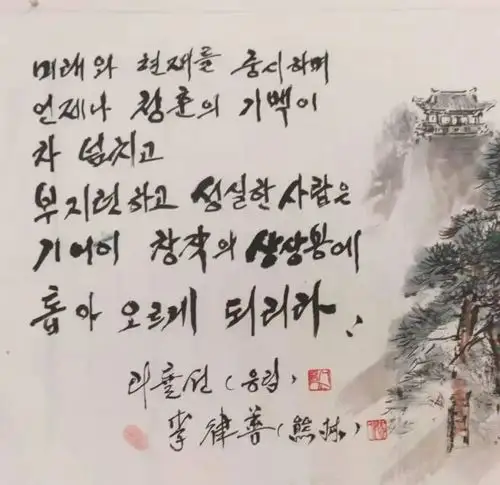 미래와 현재를 중시하며
언제나 청춘의 기백이
차 넘치고
부지런하고 성실한 사람은
기어이 창작의 상상봉에
톱아 오르게 되리라.
리률선 (웅림)
李律善 (熊林)